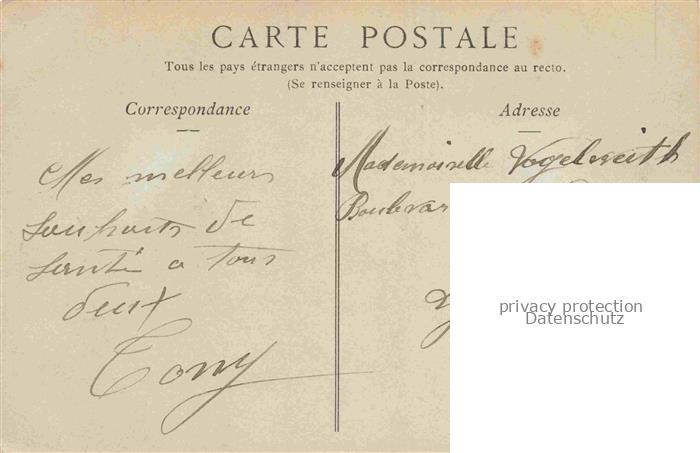 CARTE POSTALE
Tous les pays étrangers n'acceptent pas la correspondance au recto.
(Se renseigner à la Poste).
Correspondance
Adresse
Mes meilleurs
souhaits de
santé a tous
deux
Tony
Mademoiselle Vogelweith
Boulevar
privacy protection
Datenschutz